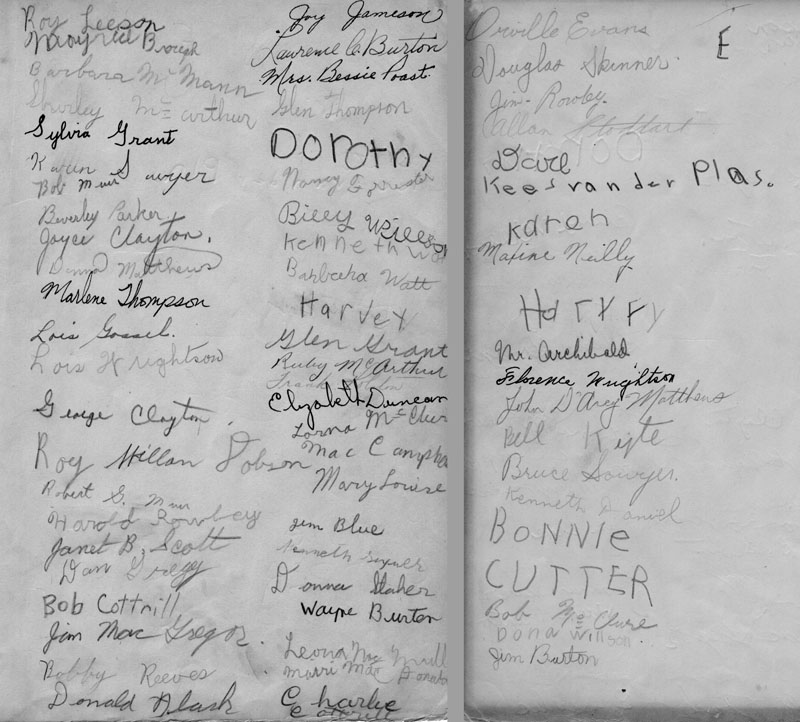 Roy Leeson
Brough
Barbara Mc Mann
Shirley Mc arthur
Sylvia Grant
Karin Sawyer
Bob Muir
Beverley Parker
Joyce Clayton.
Donna Matthews
Marlene Thompson
Lois Gossel.
Lois Wrightson
George Clayton.
Roy Dobson
Robert G. Muir
Harold Rowbey
Janet B. Scott
Dan Gregg
Bob Cottrill
Jim Mac Gregor.
Bobby Reeves
Donald
Joy Jameson
Laurence C. Burton
Mrs. Bessie Poast.
Glen Thompson
Dorothy
Nancy Forrester
Billy Willson
Kenneth
Barbara Watt
Harvey
Glen Grant
Ruby McArthur
Elizabeth Duncan
Lorna Mc Clur
Mac Campbe
Mary Louise
Jim Blue
Kenneth
Donna
Wayne Burton
Leona Mac
Mac
Charlie
Cottrill
Orville Evans
E
Douglas Skinner.
Jim Rowbey.
Allan Stoddart
David
Kees van der Plas.
Karen
Maxine Neilly
Harvey
Mr. Archibald
Florence Wrightson
John D'Arcy Matthews
Bill Kyte
Bruce Sawyer.
Kenneth Daniel
BONNIE
CUTTER
Bob Mc Clure
Dona Willson.
Jim Burton